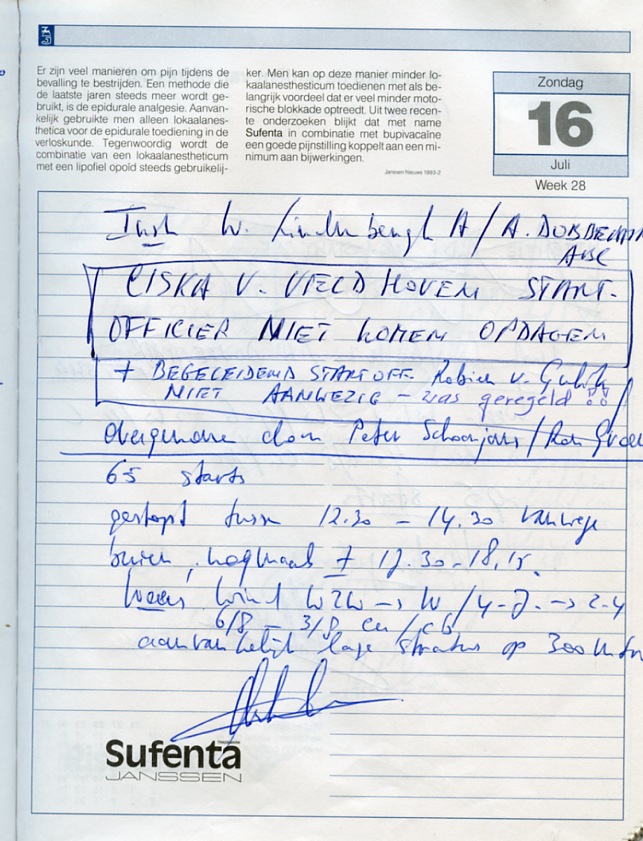 Er zijn veel manieren om pijn tijdens de
bevalling te bestrijden. Een methode die
de laatste jaren steeds meer wordt ge-
bruikt, is de epidurale analgesie. Aanvan-
kelijk gebruikte men alleen lokaalanes-
thetica voor de epidurale toediening in de
verloskunde. Tegenwoordig wordt de
combinatie van een lokaalanestheticum
met een lipofiel opoïd steeds gebruikelij-
ker. Men kan op deze manier minder lo-
kaalanestheticum toedienen met als be-
langrijk voordeel dat er veel minder moto-
rische blokkade optreedt. Uit twee recen-
te onderzoeken blijkt dat met name
Sufenta in combinatie met bupivacaïne
een goede pijnstilling koppelt aan een mi-
nimum aan bijwerkingen.
Janssen Nieuws 1993-2
Zondag
16
Juli
Week 28
W. Lindenbergh A / A.
CISKA V. VELDHOVEN START-
OFFICIER NIET KOMEN OPDAGEN
+ BEGELEIDEND START OFF. Robien v.
NIET AANWEZIG - was geregeld
Overgenomen door Peter Schoonjans /
65 starts
gestopt tussen 12.30 - 14.30 vanwege
buien, nogmaals ± 17.30 - 18.15.
wind WZW → W / → 2-4
6/8 - 3/8 cu / cb
aanvankelijk lage stratus op 300
Sufenta
JANSSEN